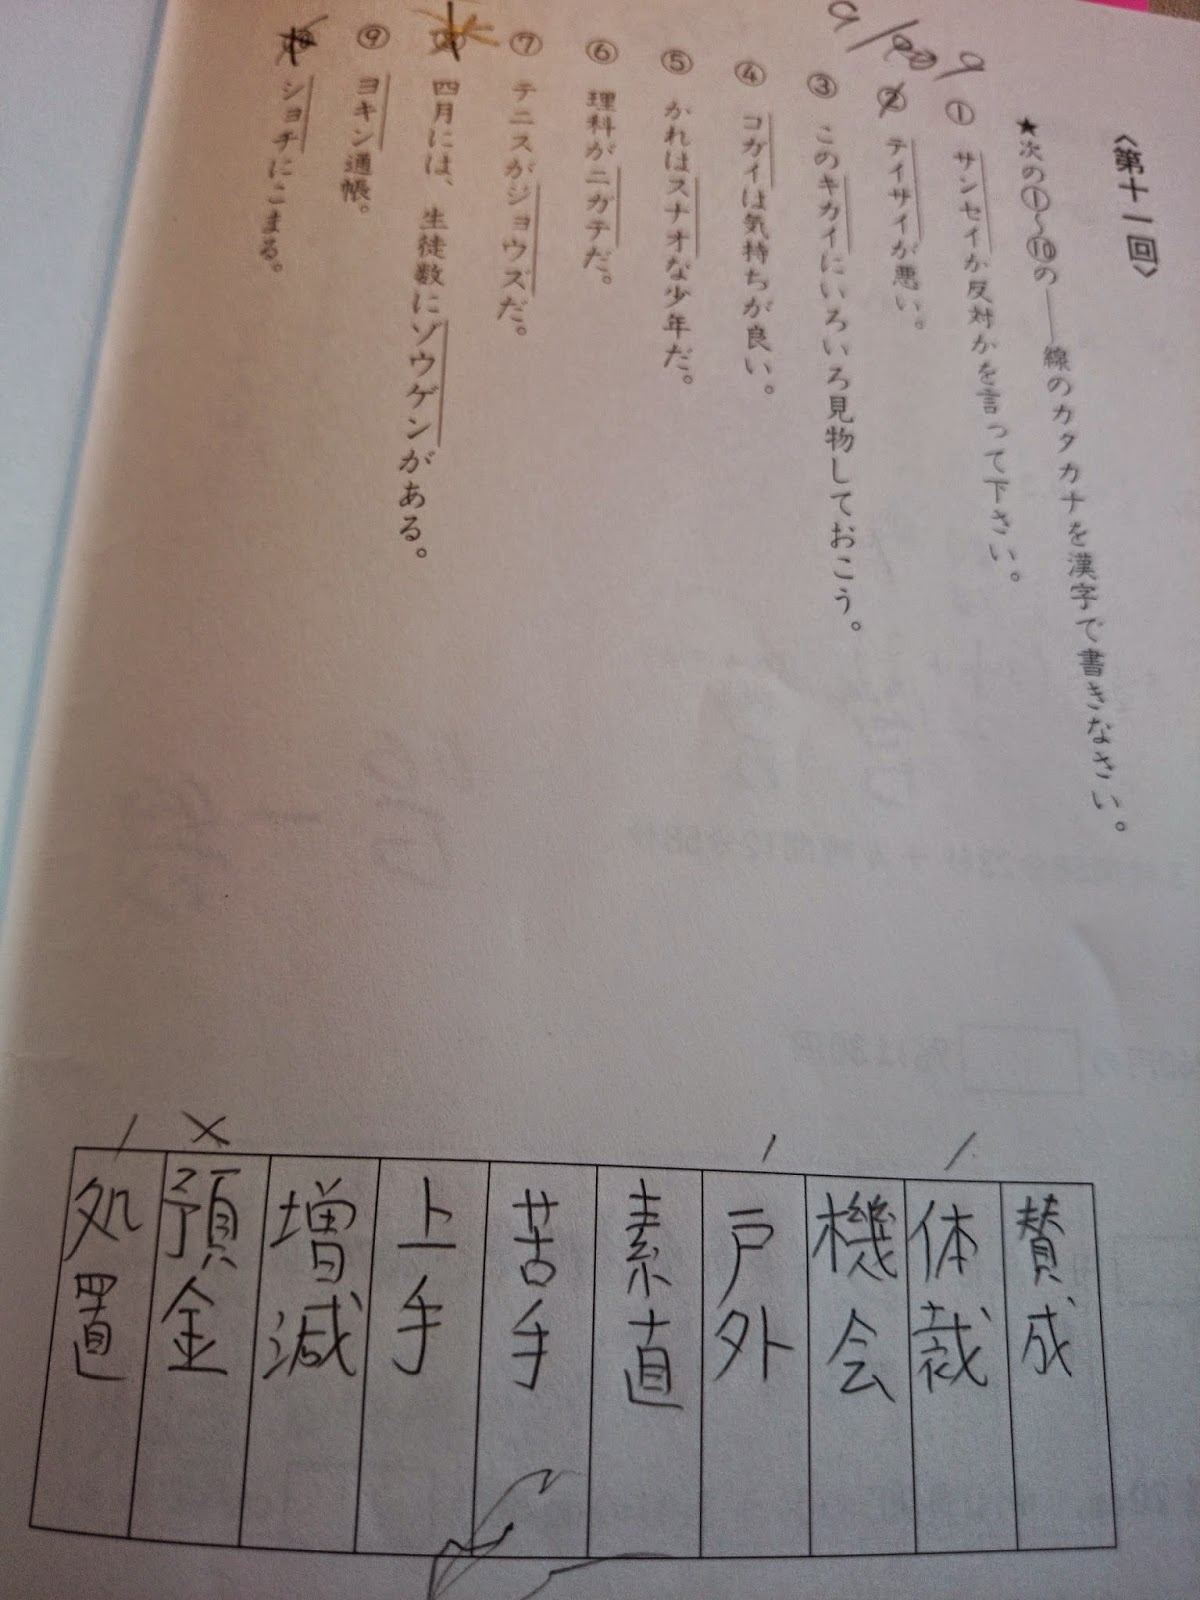 〈第十一回〉
★次の①〜⑩の――線のカタカナを漢字で書きなさい。
① サンセイか反対かを言って下さい。
② テイサイが悪い。
③ このキカイにいろいろ見物しておこう。
④ コガイは気持ちが良い。
⑤ かれはスナオな少年だ。
⑥ 理科がニガテだ。
⑦ テニスがジョウズだ。
四月には、生徒数にゾウゲンがある。
⑨ ヨキン通帳。
ショチにこまる。
賛成
体裁
機会
戸外
素直
苦手
上手
増減
預金
処置